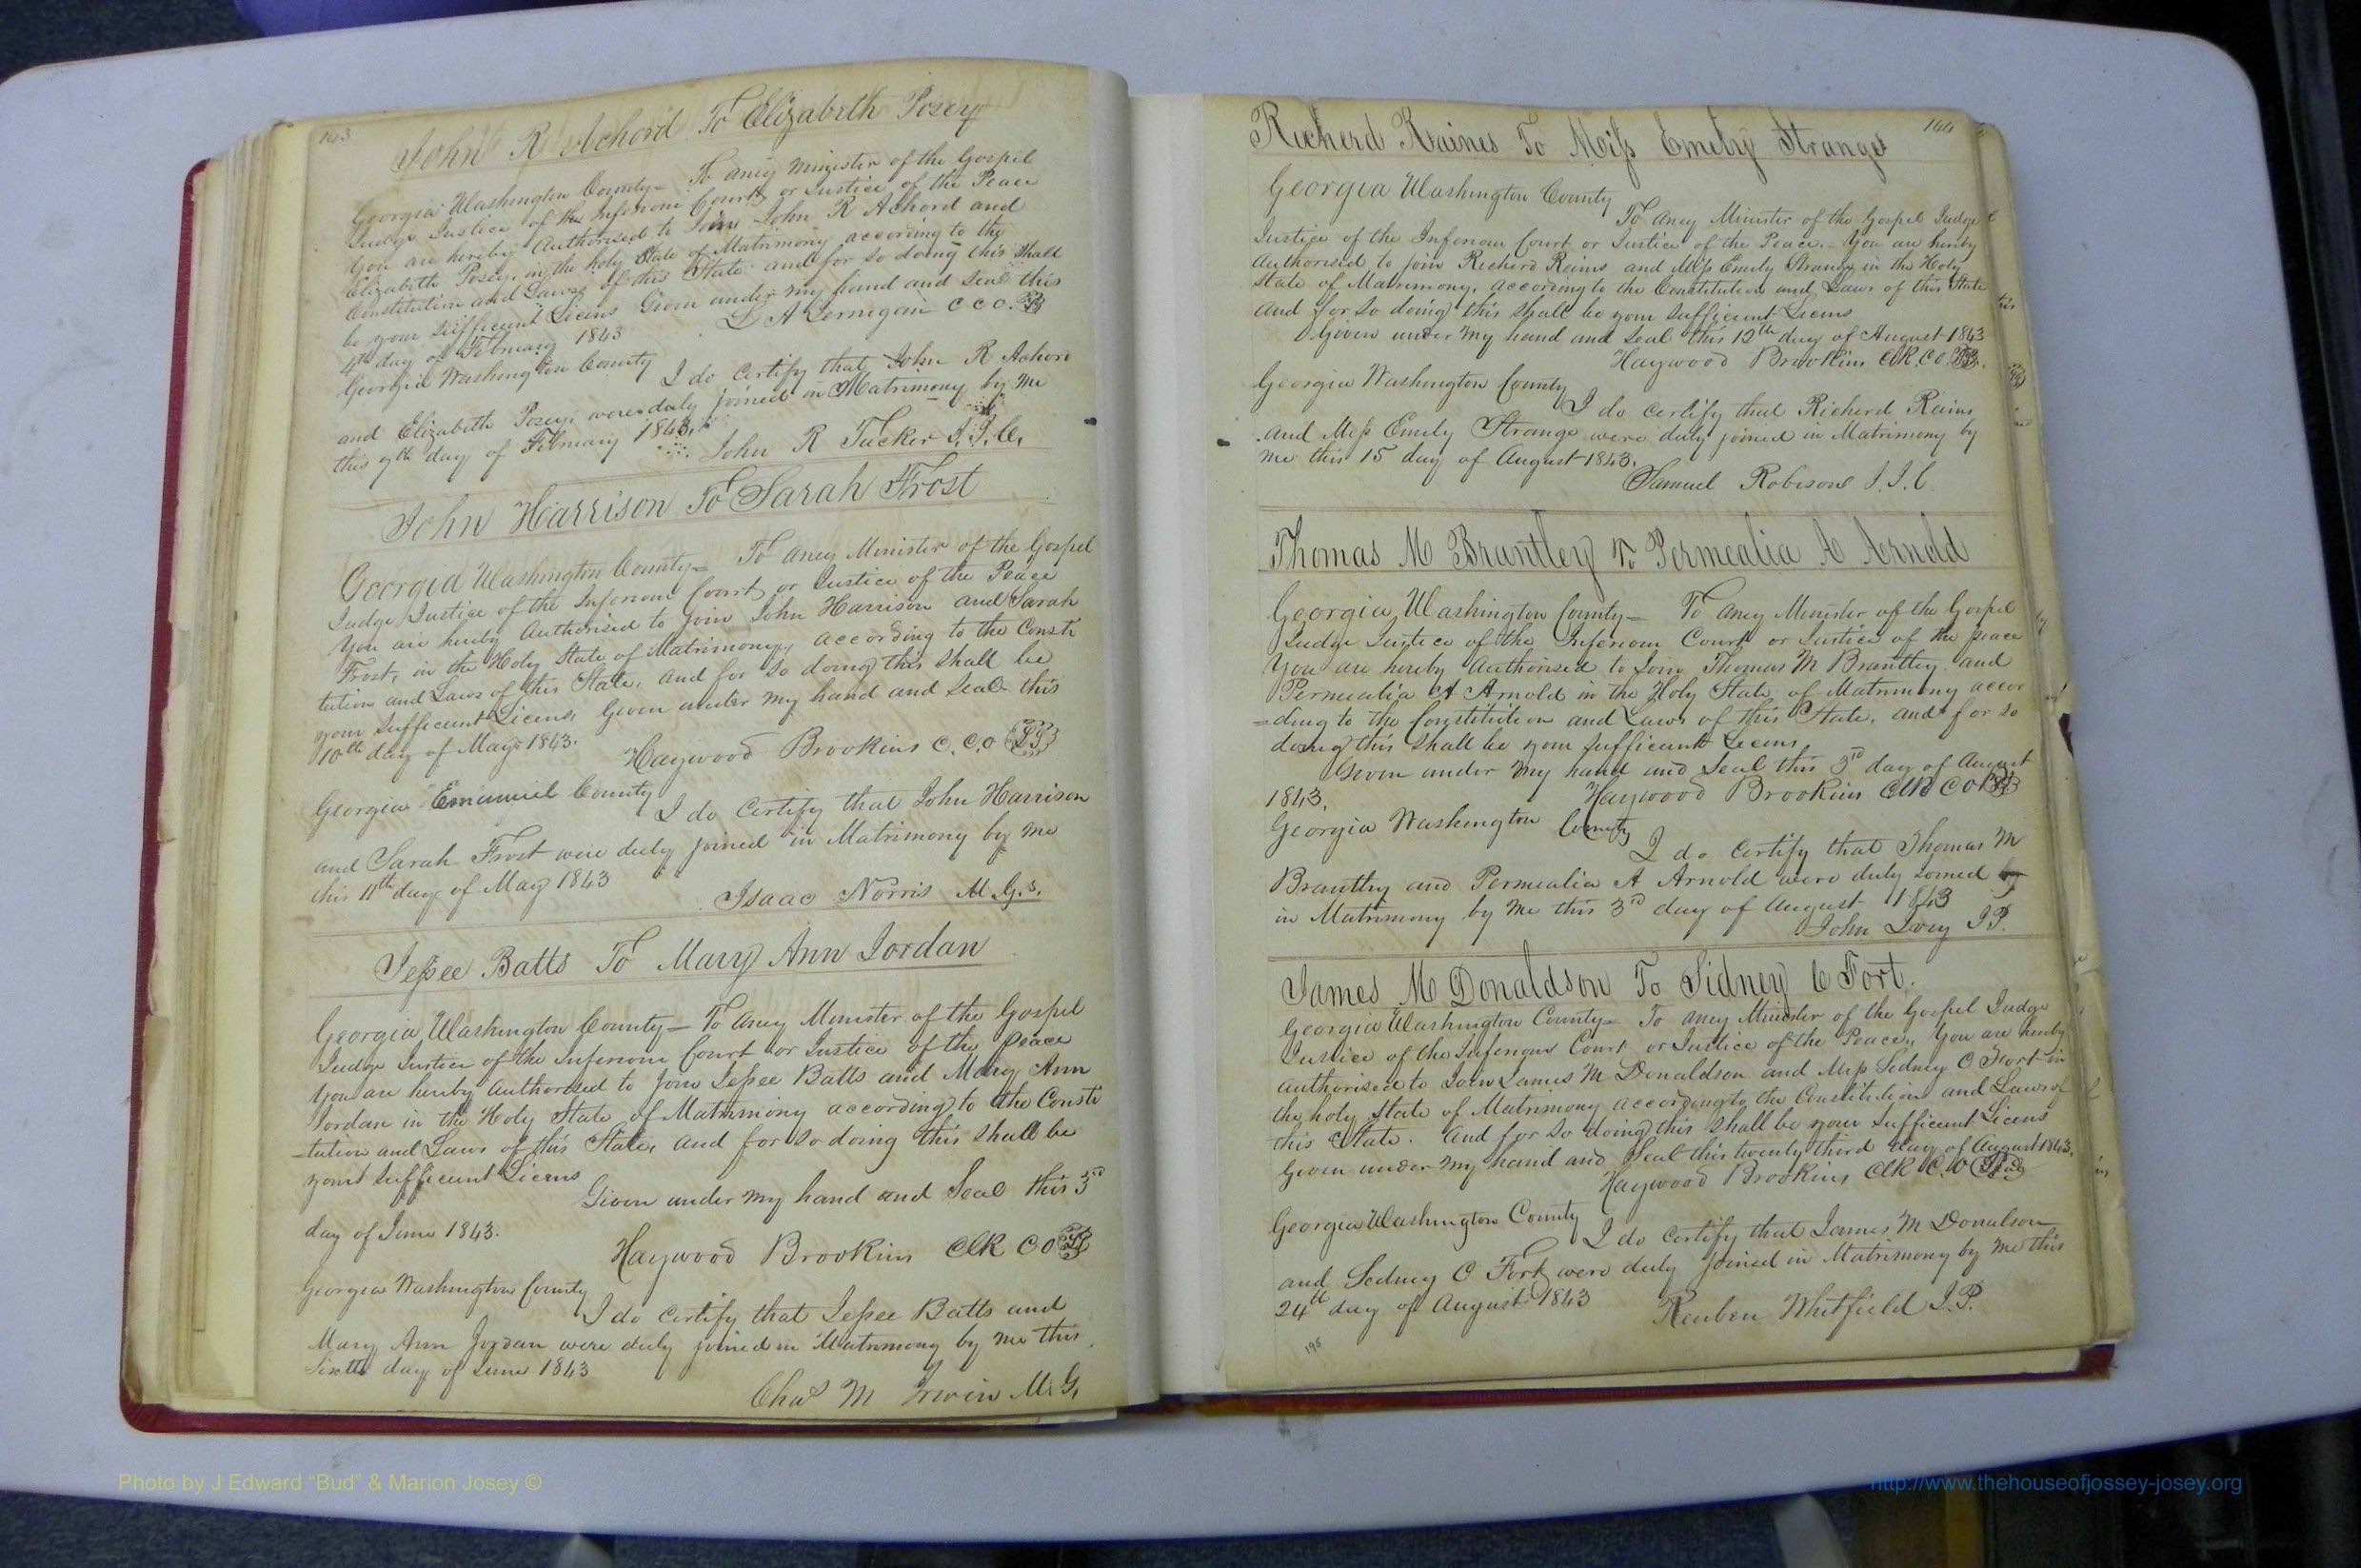 143
John R Achord To Elizabeth Posey
Georgia Washington County= To aney Minister of the Gospel
Judge Justice of the Inferiour Court or Justice of the Peace
You are hereby Authorised to Join John R Achord and
Elizabeth Posey, in the holy State of Matrimony according to the
Constitution and Laws of this State and for so doing this shall
be your sufficient Licens Given under my hand and Seal this
4th day of February 1843 L A Jernegan C C O.
Georgia Washington County I do certify that John R Achord
and Elizabeth Posey, were duly joined in Matrimony by me
this 7th day of February 1843.
John R Tucker J.I.C.
John Harrison To Sarah Frost
Georgia Washington County= To aney Minister of the Gospel
Judge Justice of the Inferiour Court or Justice of the Peace
You are hereby Authorised to join John Harrison and Sarah
Frost, in the Holy State of Matrimony, according to the Consti
tution and Laws of this State, and for so doing this shall be
your sufficient Licens, Given under my hand and Seal this
10th day of May 1843. Haywood Brookins C.C.O
Georgia Emanuel County
I do certify that John Harrison
and Sarah Frost were duly joined in Matrimony by me
this 11th day of May 1843
Isaac Norris M.G.s.
Jessee Batts To Mary Ann Jordan
Georgia Washington County= To aney Minister of the Gospel
Judge Justice of the Inferiour Court or Justice of the Peace
You are hereby authorised to join Jessee Batts and Mary Ann
Jordan in the Holy State of Matrimony according to the Consti
-tution and Laws of this State, and for so doing this shall be
your sufficient Licens
Given under my hand and Seal this 3rd
day of June 1843.
Haywood Brookins Clk C O
Georgia Washington County
I do certify that Jessee Batts and
Mary Ann Jordan were duly joined in Matrimony by me this
Sixth day of June 1843
Chas M Irwin M.G.
144
Richerd Raines To Miss Emely Strange
Georgia Washington County
To aney Minister of the Gospel Judge
Justice of the Inferiour Court or Justice of the Peace.- You are hereby
Authorised to join Richerd Rains and Miss Emely Strange in the Holy
State of Matrimony, according to the Constitution and Laws of this State
and for so doing this shall be your sufficient Licens
Given under my hand and Seal this 12th day of August 1843
Haywood Brookins Clk. C.O
Georgia Washington County
I do certify that Richerd Rains
and Miss Emely Strange were duly joined in Matrimony by
me this 15 day of August 1843.
Samuel Robison J.I.C.
Thomas M Brantley To Permealia A Arnold
Georgia, Washington County= To aney Minister of the Gospel
Judge Justice of the Inferiour Court or Justice of the peace
You are hereby authorised to Join Thomas M Brantley and
Permealia A Arnold in the Holy State of Matrimony accor
=ding to the Constitution and Laws of this State, and for so
doing this shall be your sufficient Licens
Given under my hand and Seal this 3rd day of August
1843. Haywood Brookins Clk C O
Georgia Washington County
I do certify that Thomas M
Brantley and Permealia A Arnold were duly Joined by
in Matrimony by me this 3rd day of August 1843
John Ivey J.P.
James M Donaldson To Sidney C Fort.
Georgia Washington County= To aney Minister of the Gospel Judge
Justice of the Inferiour Court or Justice of the Peace,, You are hereby
authorised to Join James M Donaldson and Miss Sedney C Fort in
the holy State of Matrimony according to the Constitution and Laws of
this State. And for so doing this shall be your sufficient Licens
Given under my hand and Seal this twenty third day of August 1843.
Haywood Brookins Clk C.O
Georgia Washington County
I do certify that James M Donalson
and Sedney C Fort were duly joined in Matrimony by me this
24th day of August 1843
Reuben Whitfield J.P.
195
Photo by J Edward "Bud" & Marion Josey ©
http://www.thehouseofjossey-josey.org